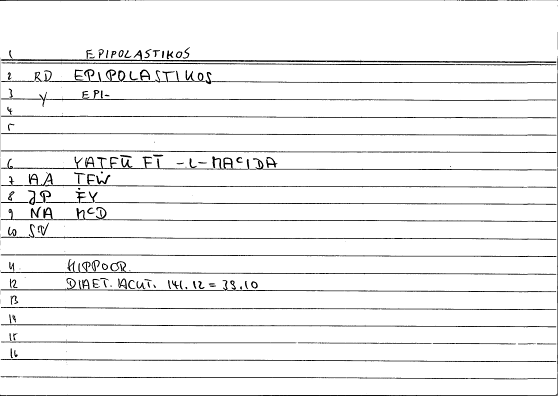 1 EPIPOLASTIKOS
2 RD EPIPOLASTIKOS
3 Y EPI-
4
5
6 YATFŪ FĪ -L-MAcIDA
7 AA ṬFW
8 JP FY
9 NA McD
10 SV
11 HIPPOCR.
12 DIAET. ACUT. 141.12 = 39.10
13
14
15
16